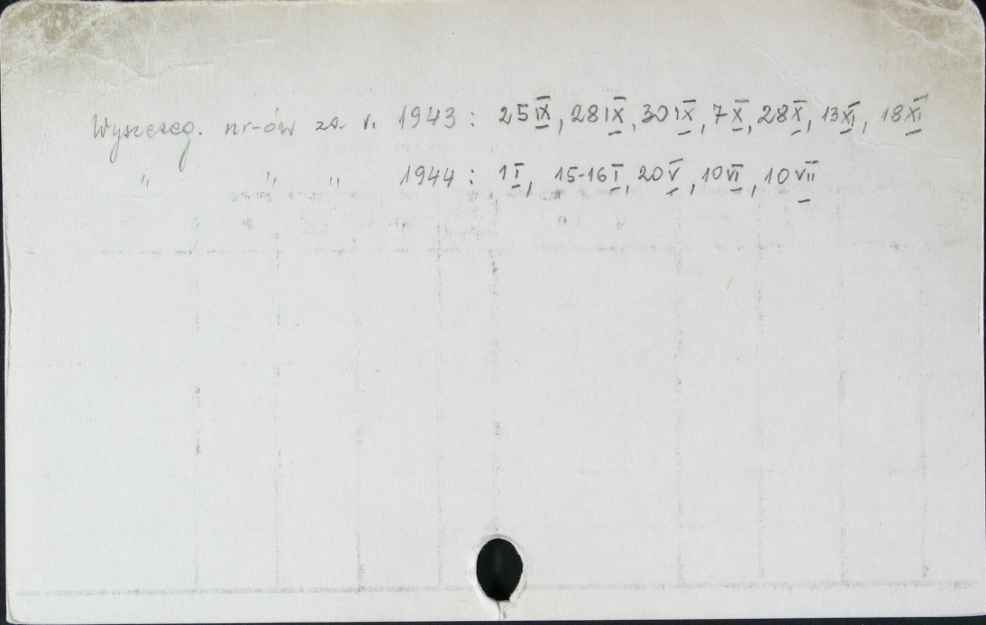 Wyszczeg. nr-ów za r. 1943 : 25 IX, 28 IX, 30 IX, 7 X, 28 X, 13 XI, 18 XI
" " " 1944 : 1 I, 15-16 I, 20 V, 10 VI, 10 VII